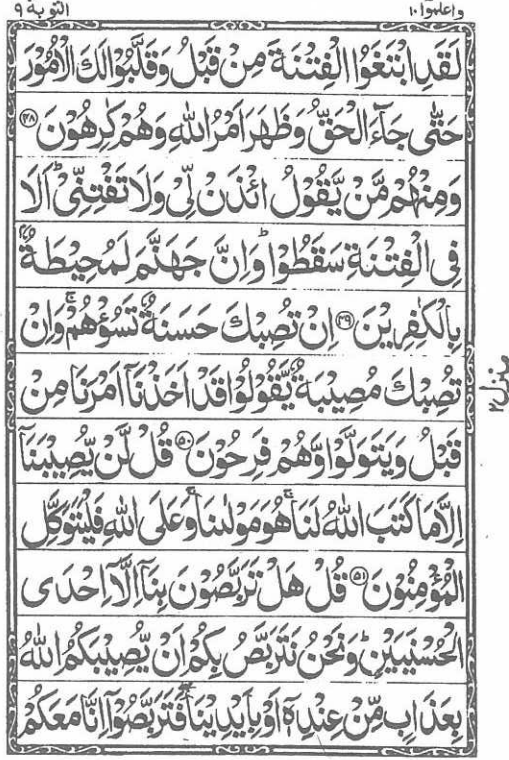 واعلموا ۱۰
التوبة ۹
لَقَدِ ابْتَغَوُا الْفِتْنَةَ مِنْ قَبْلُ وَقَلَّبُوْا لَكَ الْاُمُوْرَ
حَتّٰى جَآءَ الْحَقُّ وَظَهَرَ اَمْرُ اللّٰهِ وَهُمْ كٰرِهُوْنَ ۴۸
وَمِنْهُمْ مَّنْ يَّقُوْلُ ائْذَنْ لِّىْ وَلَا تَفْتِنِّىْ ؕ اَلَا
فِى الْفِتْنَةِ سَقَطُوْا ؕ وَاِنَّ جَهَنَّمَ لَمُحِيْطَةٌۢ
بِالْكٰفِرِيْنَ ۴۹ اِنْ تُصِبْكَ حَسَنَةٌ تَسُؤْهُمْ ۚ وَاِنْ
تُصِبْكَ مُصِيْبَةٌ يَّقُوْلُوْا قَدْ اَخَذْنَاۤ اَمْرَنَا مِنْ
قَبْلُ وَيَتَوَلَّوْا وَّهُمْ فَرِحُوْنَ ۵۰ قُلْ لَّنْ يُّصِيْبَنَاۤ
اِلَّا مَا كَتَبَ اللّٰهُ لَنَا ۚ هُوَ مَوْلٰىنَا ۚ وَعَلَى اللّٰهِ فَلْيَتَوَكَّلِ
الْمُؤْمِنُوْنَ ۵۱ قُلْ هَلْ تَرَبَّصُوْنَ بِنَاۤ اِلَّاۤ اِحْدَى
الْحُسْنَيَيْنِ ؕ وَنَحْنُ نَتَرَبَّصُ بِكُمْ اَنْ يُّصِيْبَكُمُ اللّٰهُ
بِعَذَابٍ مِّنْ عِنْدِهٖۤ اَوْ بِاَيْدِيْنَا ۖ فَتَرَبَّصُوْۤا اِنَّا مَعَكُمْ
منزل ۲